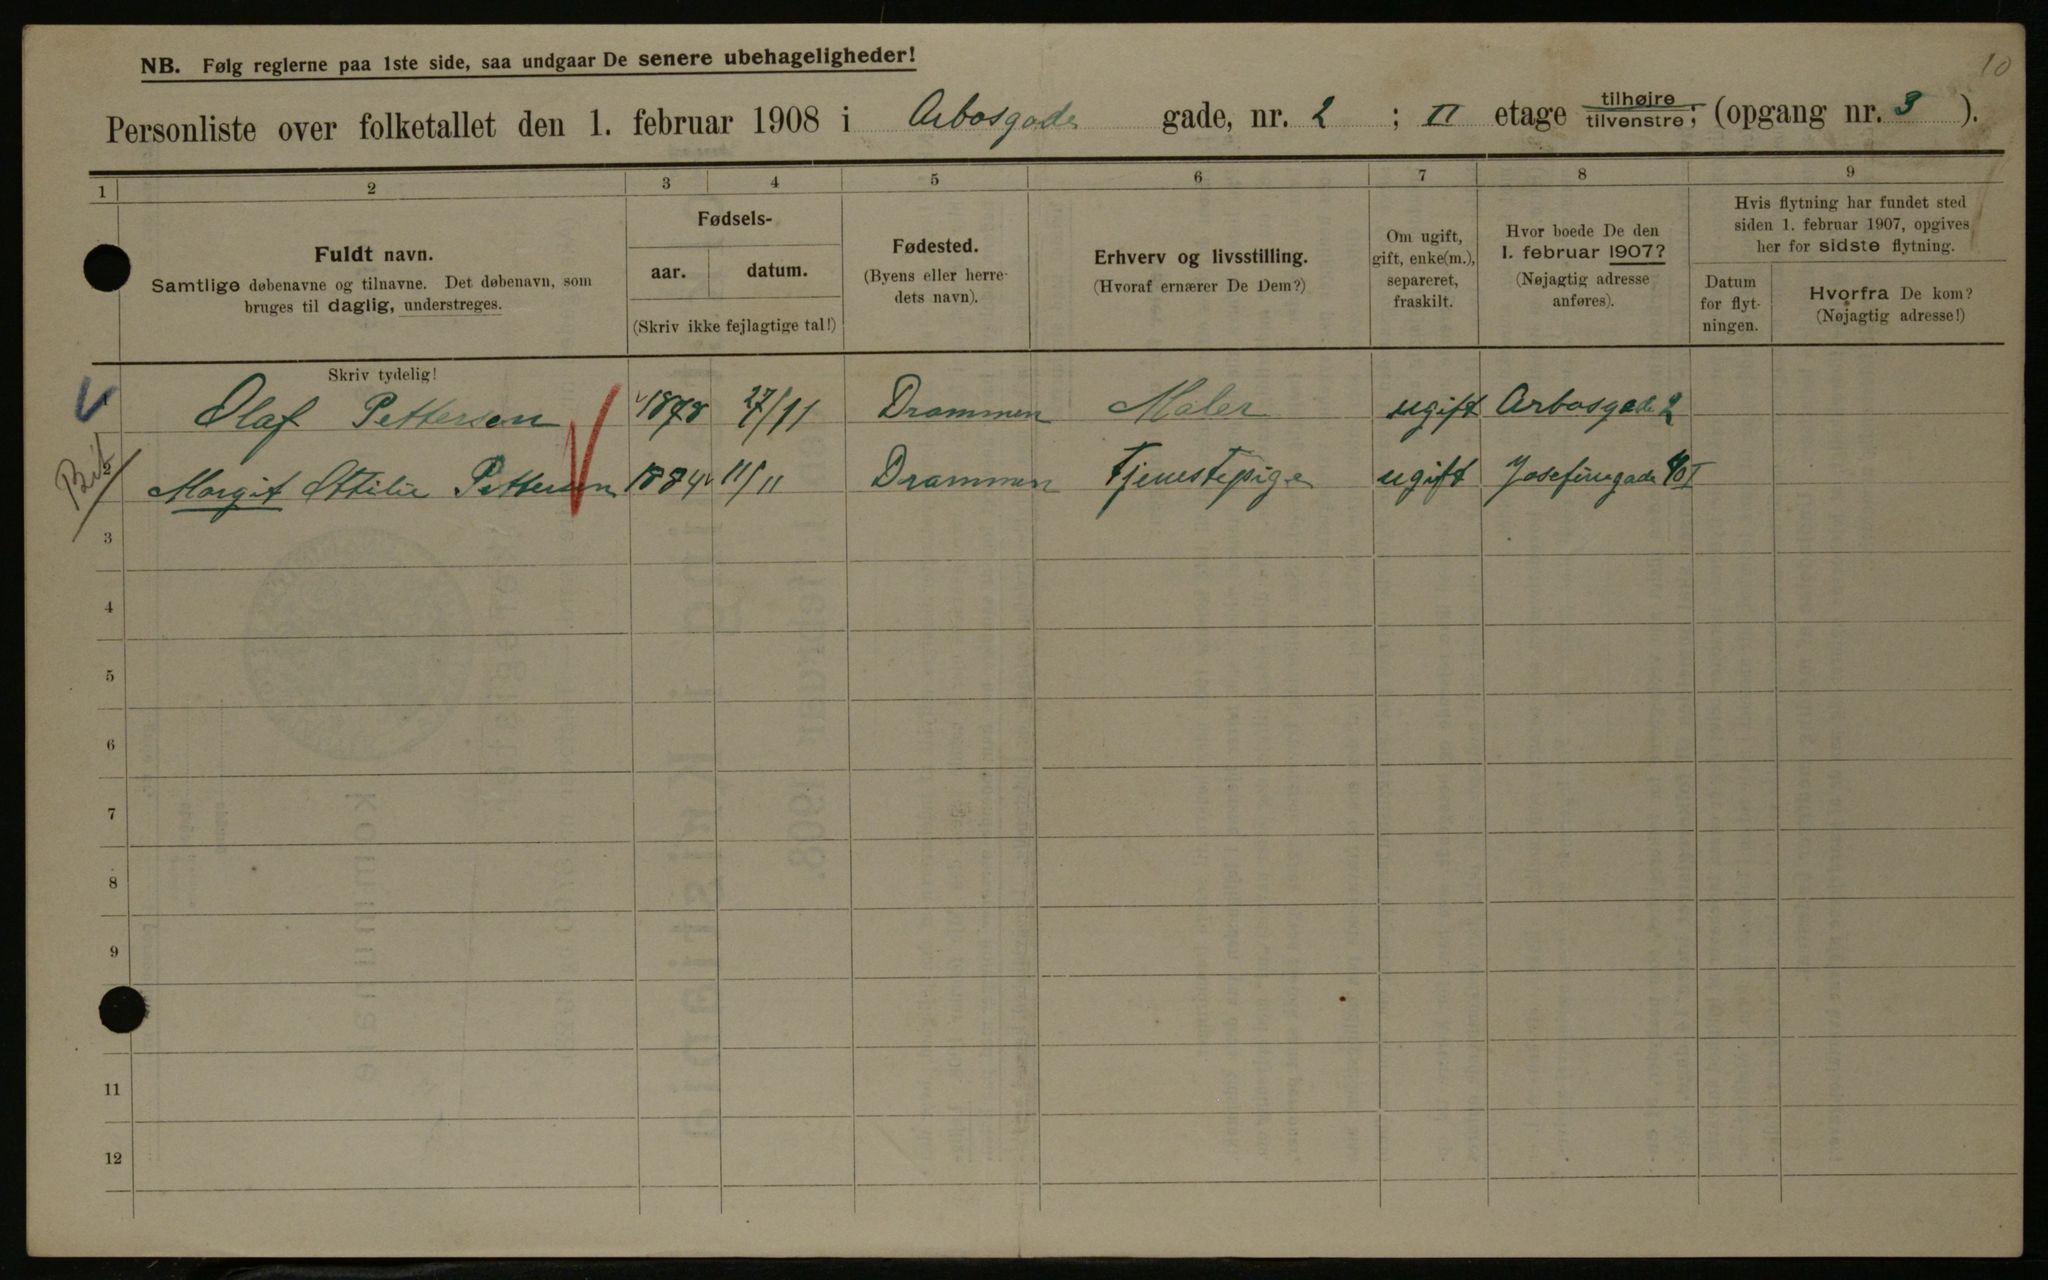 10
NB. Følg reglerne paa 1ste side, saa undgaar De senere ubehageligheder!
Personliste over folketallet den 1. februar 1908 i Arbosgade gade, nr. 2 ; II etage tilhøjre tilvenstre; (opgang nr. 3 ).
1 2 3 4 5 6 7 8 9
Fuldt navn.
Samtlige døbenavne og tilnavne. Det døbenavn, som
bruges til daglig, understreges.
Fødsels-
aar. datum.
(Skriv ikke fejlagtige tal!)
Fødested.
(Byens eller herre-
dets navn).
Erhverv og livsstilling.
(Hvoraf ernærer De Dem?)
Om ugift,
gift, enke(m.),
separeret,
fraskilt.
Hvor boede De den
1. februar 1907?
(Nøjagtig adresse
anføres).
Hvis flytning har fundet sted
siden 1. februar 1907, opgives
her for sidste flytning.
Datum
for flyt-
ningen.
Hvorfra De kom?
(Nøjagtig adresse!)
Skriv tydelig!
Olaf Pettersen 1878 27/11 Drammen Maler ugift Arbosgade 2
2 Margit Ottilie Pettersen 1884 11/11 Drammen Tjenestepige ugift Josefinegade 40 I
3
4
5
6
7
8
9
11
12